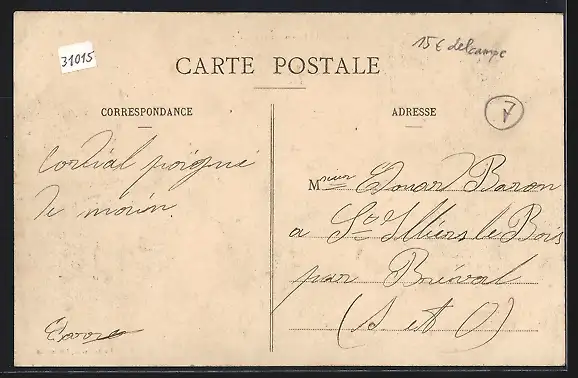 31015
15€ delcampe
CARTE POSTALE
CORRESPONDANCE
ADRESSE
Cordial poigné
de morin
Msieur Edouar Baron
a St Illiers le Bois
par Bréval
(S et O)